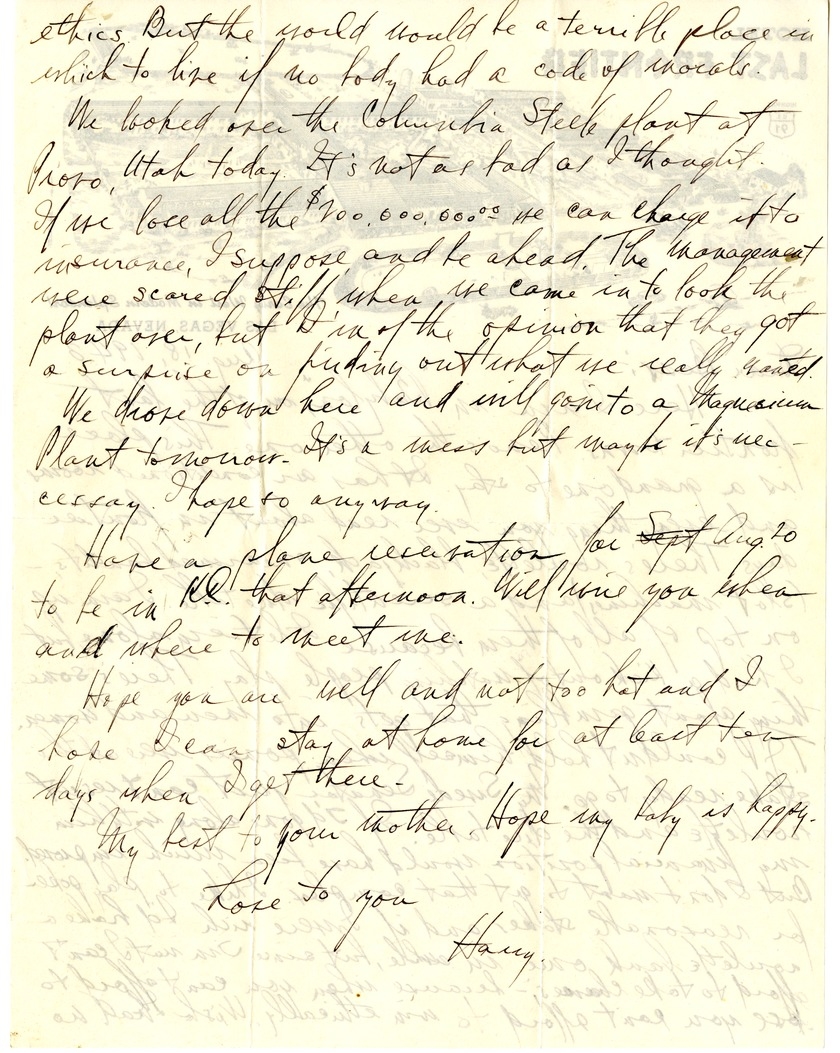 ethics. But the world would be a terrible place in
which to live if no body had a code of morals.
We looked over the Columbia Steele plant at
Provo, Utah today. It's not as bad as I thought.
If we lose all the $200,000,000⁰⁰ we can charge it to
insurance, I suppose and be ahead. The management
were scared stiff when we came in to look the
plant over, but I'm of the opinion that they got
a surprise on finding out what we really wanted.
We drove down here and will go into a Magnesium
Plant tomorrow. It's a mess but maybe it's nec-
cessay. I hope so anyway.
Have a plane reservation for Sept Aug. 20
to be in K.C. that afternoon. Will wire you when
and where to meet me.
Hope you are well and not too hot and I
hope I can stay at home for at least ten
days when I get there.
My best to your mother. Hope my baby is happy.
Love to you
Harry.